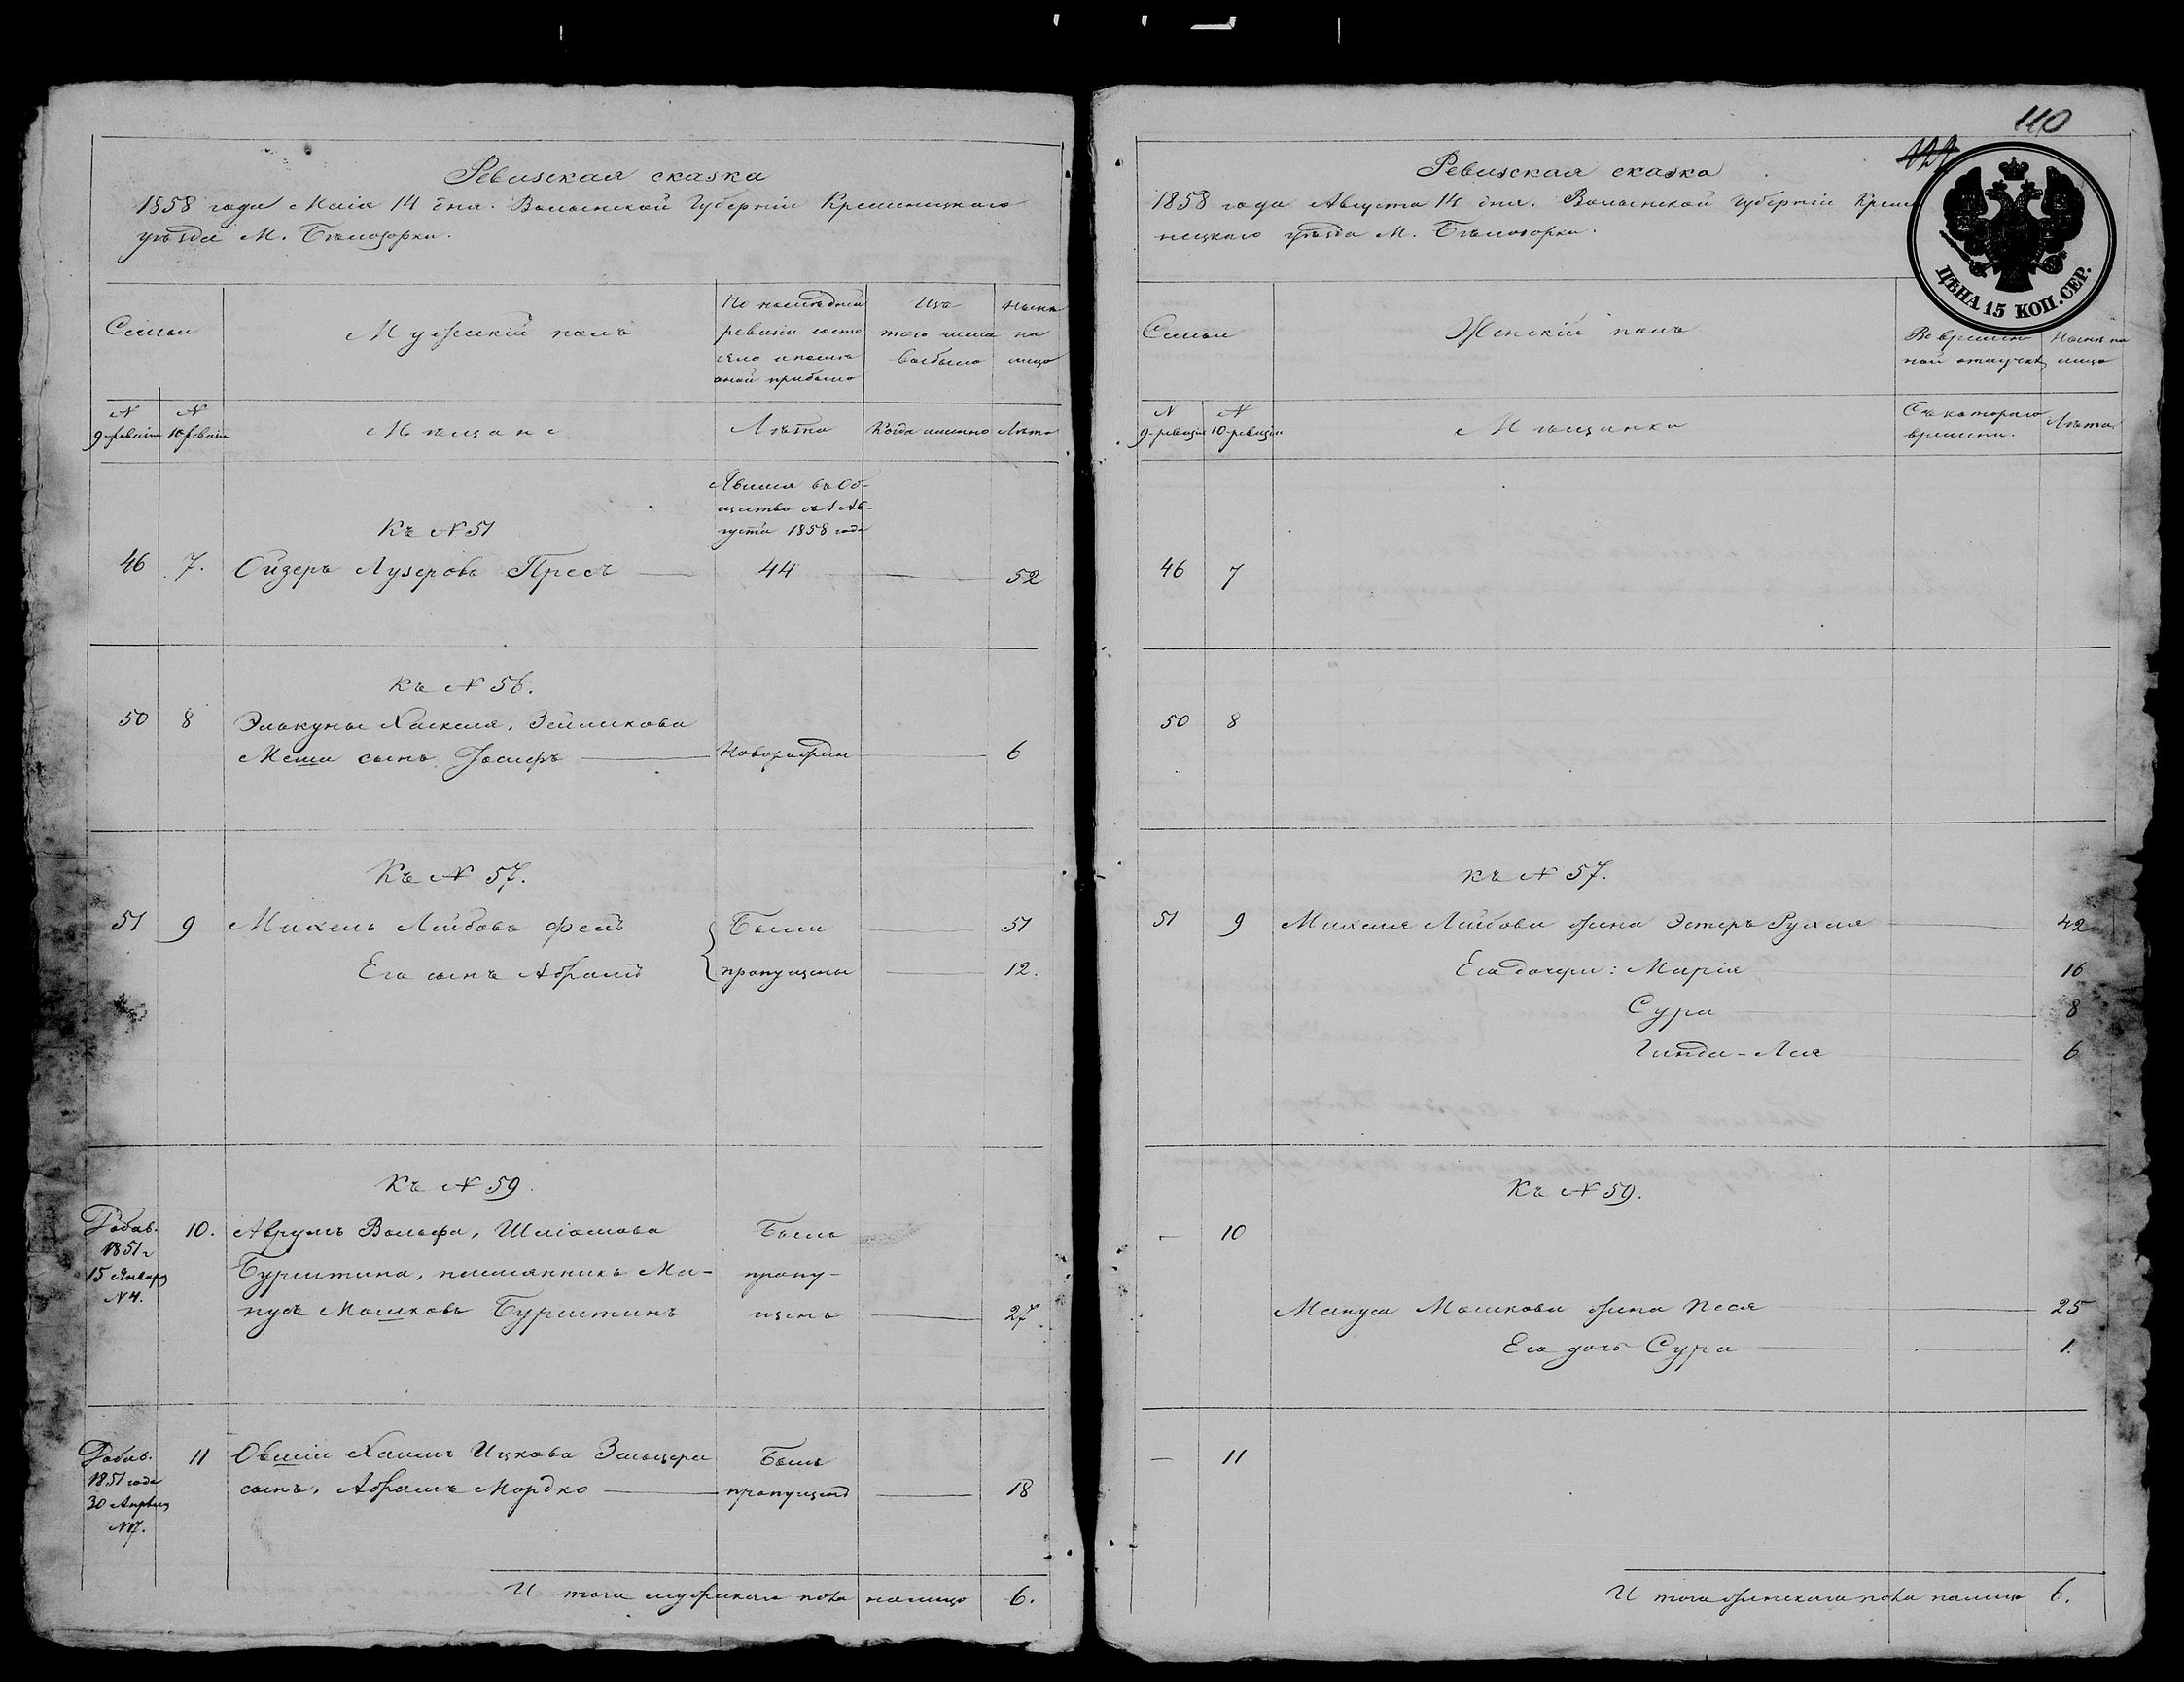 Ревизская сказка
1858 года Маія 14 дня. Волынской Губерніи Кременецкаго
уѣзда М. Бѣлозорки.
Семьи
Мужскій полъ
По послѣдней
ревизіи состо
яло и послѣ
оной прибыло
Изъ
того числа
выбыло
Нынѣ
на
лицо
N
9 ревизіи
N
10 ревизіи
Мѣщане
Лѣта
Когда именно
Лѣта
Явился въ Об-
щество съ 1 Ав-
густа 1858 года
Къ N 51
46 7. Ойзеръ Лузеровъ Пресъ 44 52
Къ N 56.
50 8 Элькуны Хаскеля, Зейликова
Меша сынъ Іосифъ Новорожден 6
Къ N 57.
51 9 Михель Лейбовъ Были 51
Его сынъ Абрамъ пропущены 12.
Къ N 59.
Добав.
1851 г
15 Января
N 4.
10. Аврумъ Вольфа, Шліомова Былъ
Бурштина, племянникъ Ма- пропу-
нусъ Мошковъ Бурштинъ щенъ 27.
Добав.
1851 года
30 Апрѣля
N 17.
11 Овшіи Хаимъ Ицкова Зальцера Былъ
сынъ, Абрамъ Мордко пропущенъ 18
И того мужскаго пола налицо 6.
110
129
Ревизская сказка
1858 года Августа 14 дня. Волынской Губерніи Креме
нецкаго уѣзда М. Бѣлозорки.
ЦѢНА 15 КОП. СЕР.
Семьи
Женскій полъ
Во времен
ной отлучкѣ
Нынѣ на
лицо
N
9-ревизіи
N
10-ревизіи
Мѣщанки
Съ котораго
времени.
Лѣта
46 7
50 8
Къ N 57.
51 9 Михеля Лейбова жена Эстеръ Рухля 42
Его дочери: Марія 16
Сура 8
Гинда-Лея 6
Къ N 59.
— 10
Мануса Мошкова жена Песя 25
Его дочь Сура 1.
— 11
И того женскаго пола налицо 6.